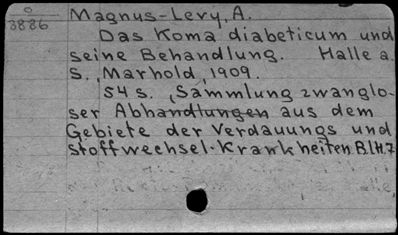 O
3886
Magnus-Levy, A.
Das Koma diabeticum und
seine Behandlung. Halle a.
S., Marhold, 1909.
54 s. (Sammlung zwanglo-
ser Abhandlungen aus dem
Gebiete der Verdauungs und
Stoffwechsel-Krankheiten B.I.H.7